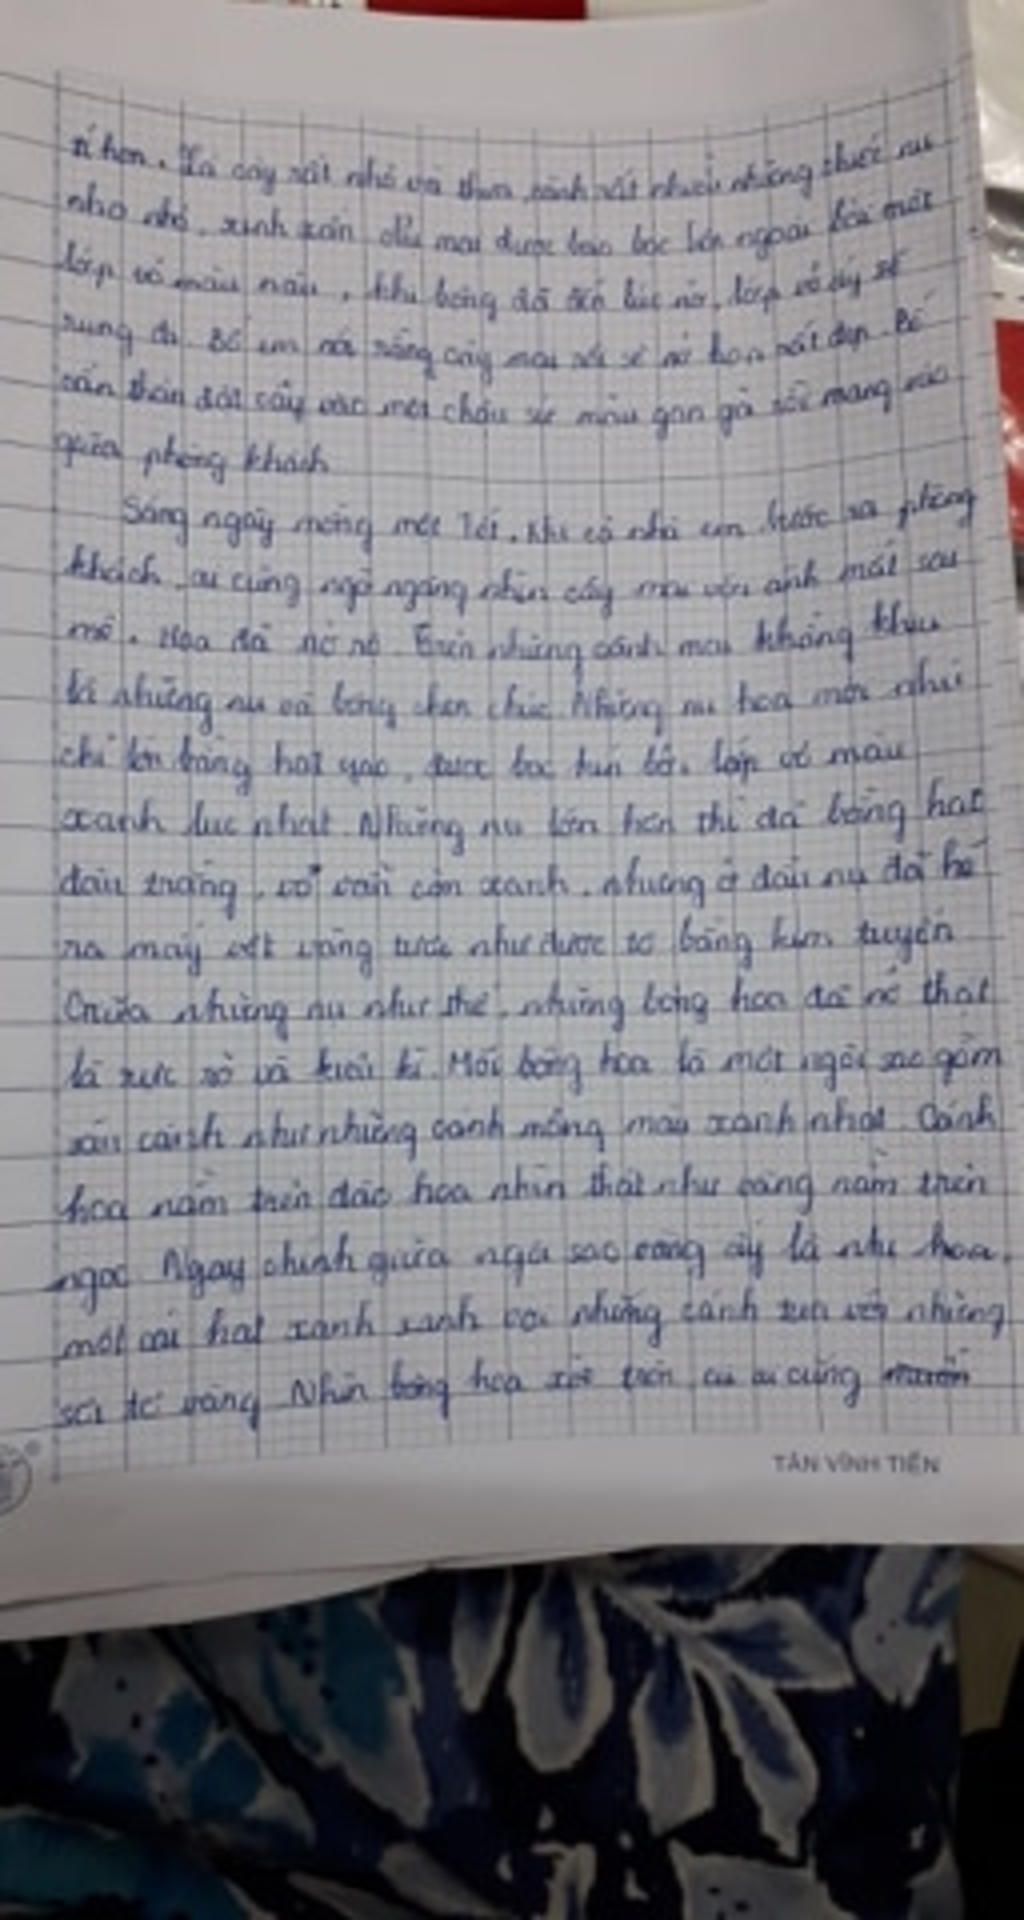 tí hon. Lá cây rất nhỏ và thưa, cành rất nhiều những chiếc nụ
nho nhỏ, xinh xắn đều mai được bao bọc bên ngoài bởi một
lớp vỏ màu nâu, khi bông đã đến lúc nở, lớp vỏ ấy sẽ
rụng đi. Bố em nói rằng cây mai sẽ nở hoa rất đẹp. Bố
cẩn thận đặt cây vào một chậu sứ màu gan gà rồi mang vào
giữa phòng khách
Sáng ngày mồng một Tết, khi cả nhà em bước ra phòng
khách, ai cũng ngỡ ngàng nhìn cây mai với ánh mắt say
mê. Hoa đã nở rộ. Trên những cành mai khẳng khiu
là những nụ và bông chen chúc. Những nụ hoa mới nhú
chỉ lớn bằng hạt gạo, được bọc kín bởi lớp vỏ màu
xanh lục nhạt. Những nụ lớn hơn thì đã bằng hạt
đậu trắng, vỏ vẫn còn xanh, nhưng ở đầu nụ đã hé
ra mấy vệt vàng tươi như được tô bằng kim tuyến
Giữa những nụ như thế, những bông hoa đã nở thật
là rực rỡ và kiêu kì. Mỗi bông hoa là một ngôi sao gồm
sáu cánh như những cánh mỏng màu xanh nhạt. Cánh
hoa nằm trên đài hoa nhìn thật như vàng nằm trên
ngọc. Ngay chính giữa ngôi sao vàng ấy là nhị hoa,
một cái hạt xanh xanh với những cánh tua với những
sợi tơ vàng. Nhìn bông hoa trên, ai ai cũng
TÂN VĨNH TIẾN